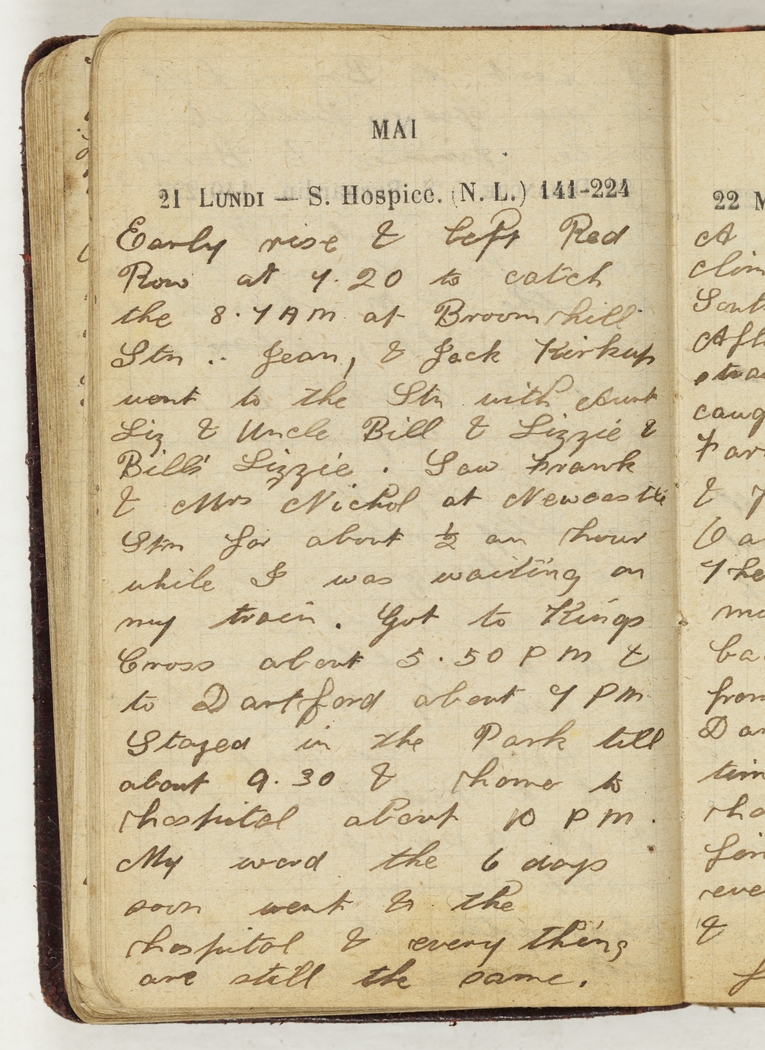 MAI
21 LUNDI — S. Hospice. (N. L.) 141-224
Early rise & left Red
Row at 7.20 to catch
the 8.7 AM at Broomhill
Stn .. Jean, & Jack Kirkup
went to the Stn with Aunt
Liz & Uncle Bill & Lizzie &
Bill's Lizzie. Saw Frank
& Mrs Nichol at Newcastle
Stn for about ½ an hour
while I was waiting on
my train. Got to Kings
Cross about 5.50 PM &
to Dartford about 7 PM.
Stayed in the Park till
about 9.30 & home to
hospital about 10 PM.
My word the 6 days
soon went & the
hospital & every thing
are still the same.
22 M
A
clim
Sout
Aft
caug
Far
& 7
The
mo
ba
from
Da
tim
ho
eve
&